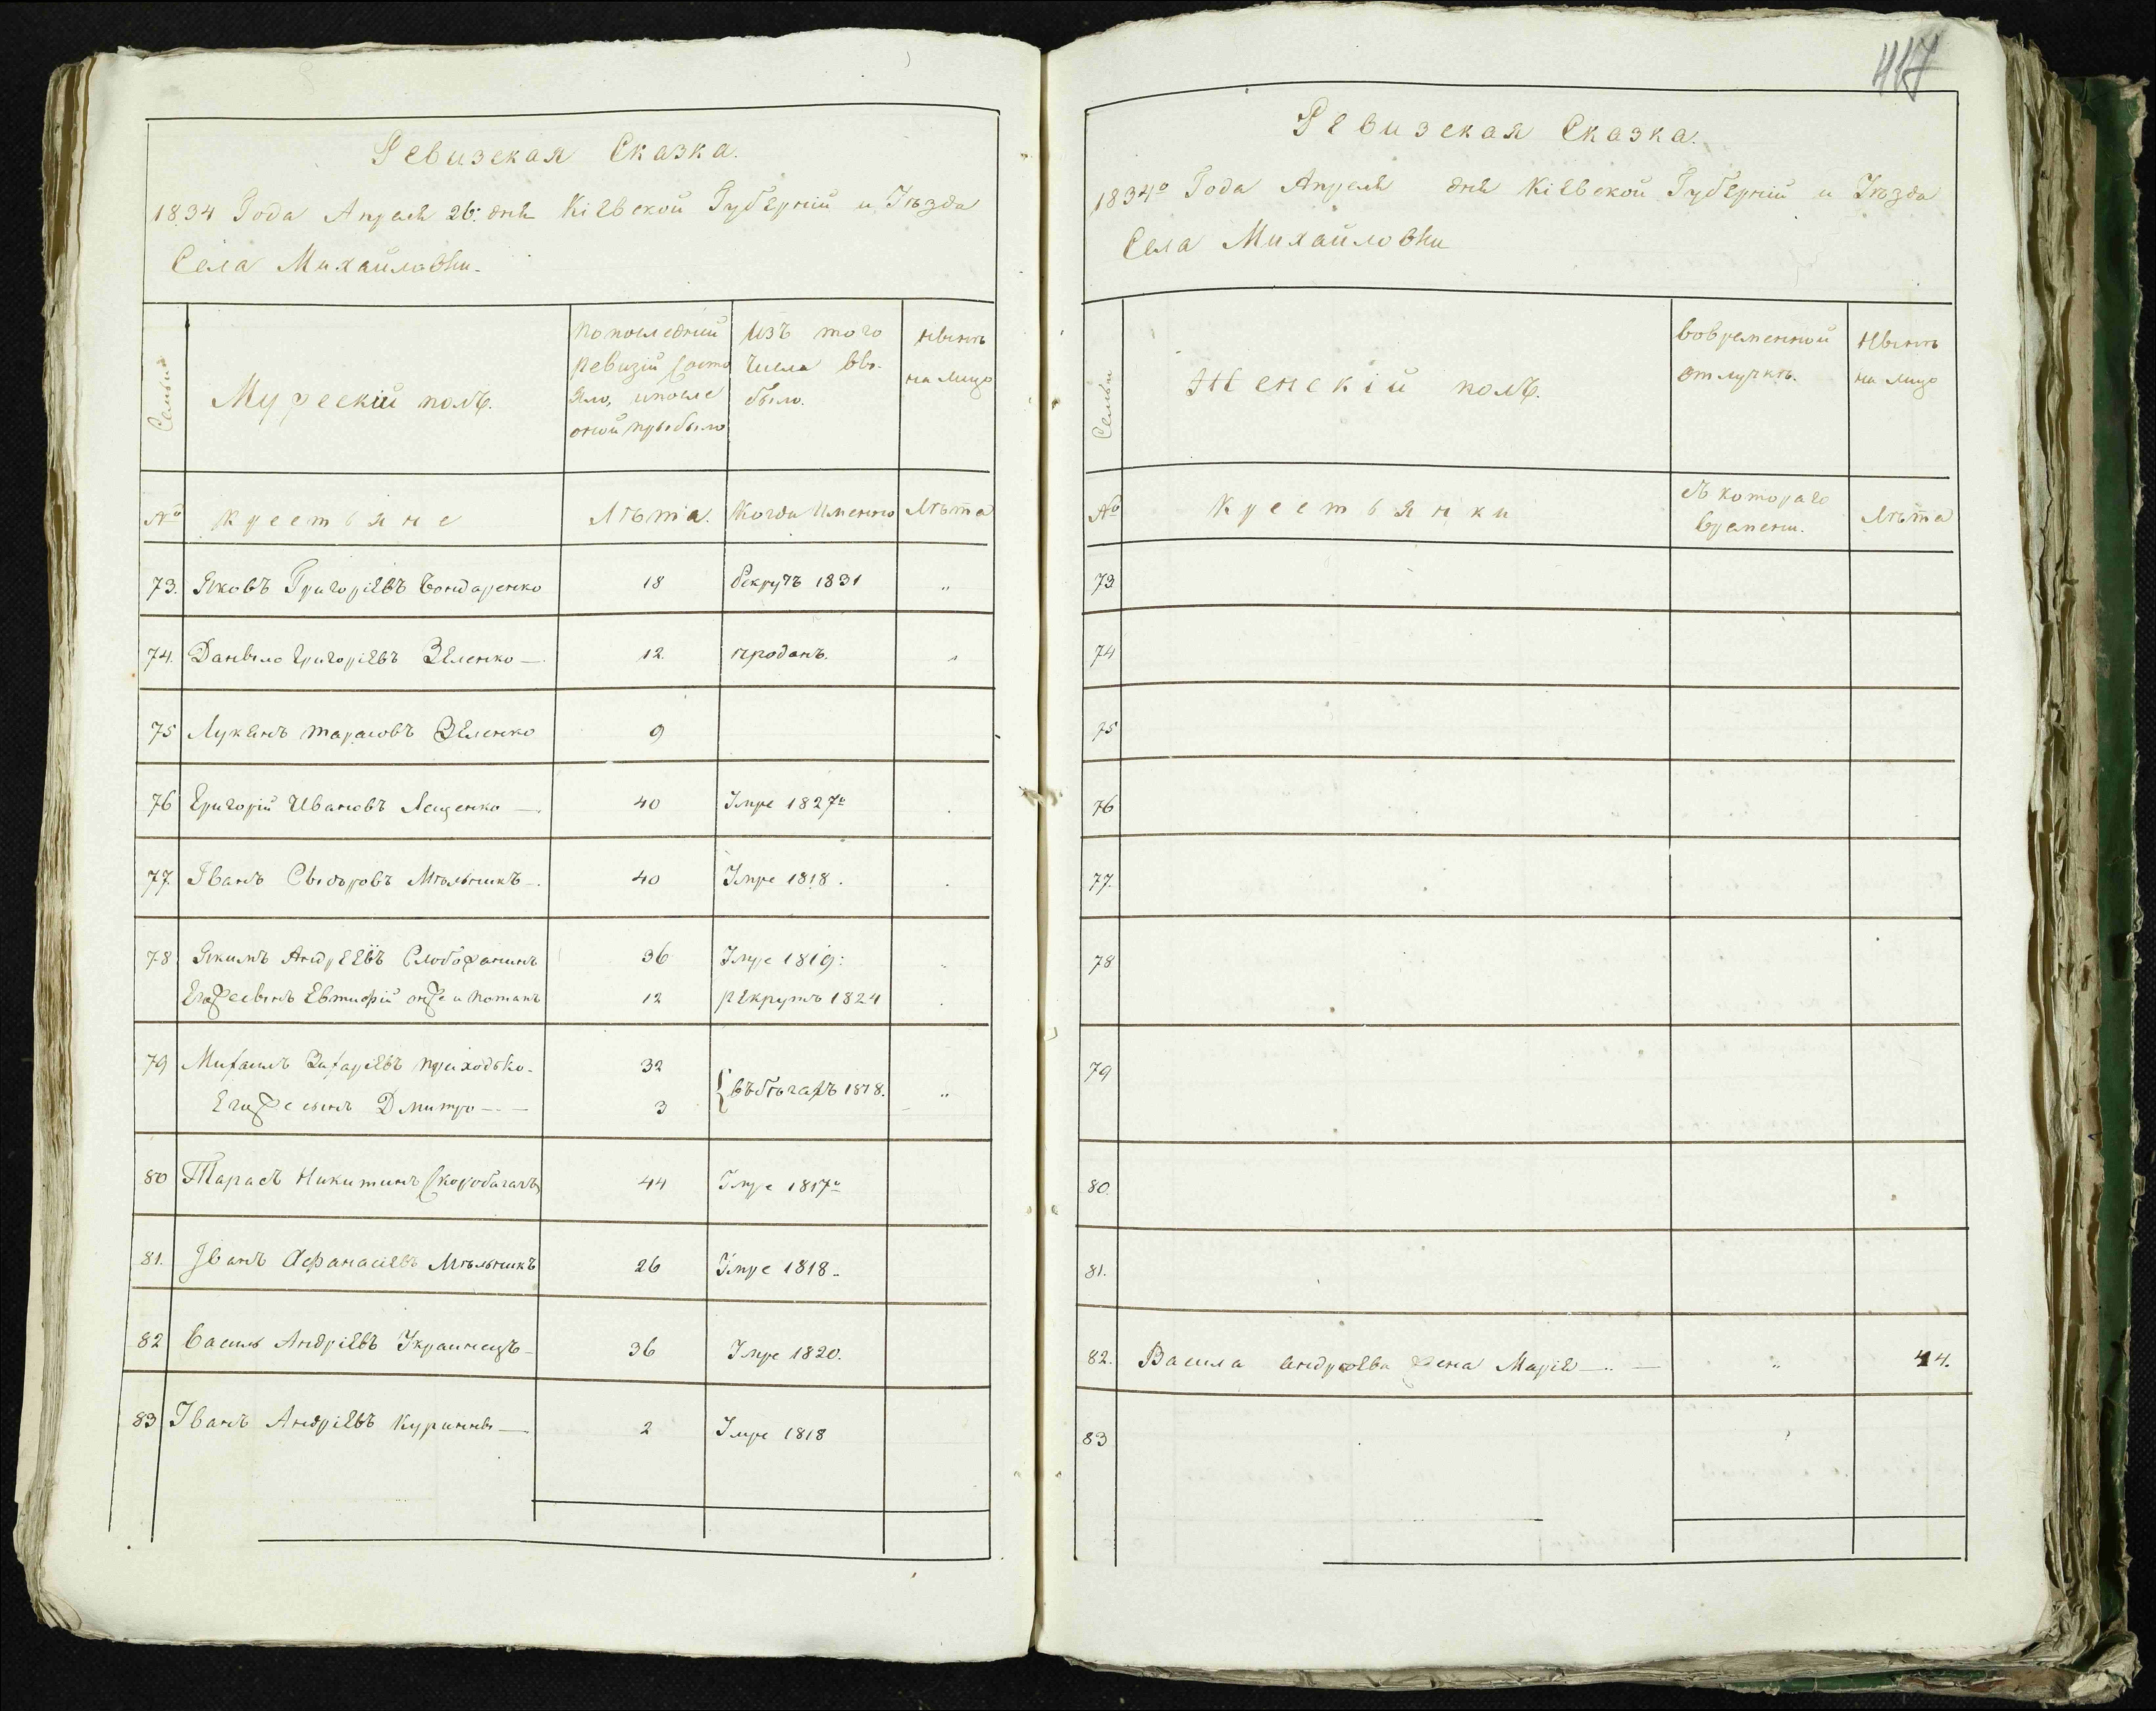 Ревизская Сказка.
1834 Года Апреля 26: дня Кіевской Губерніи и Уезда
Села Михайловки.
Семьи
Мужескій полъ.
по последний
ревизіи состо
яло, ипосле
оной прыбыло
Изъ того
числа вы-
было.
Нынѣ
на лицо
№
Крестьяне
Лѣта.
Когда Именно
Лѣта
73. Яковъ Григоріевъ Бондаренко 18 Рекрутъ 1831 "
74. Даныло Григоріевъ Зеленко — 12. проданъ. "
75 Лукянъ Тарасовъ Зеленко 9
76 Григорій Ивановъ Лещенко — 40 Умре 1827го
77. Іванъ Сыдоровъ Мѣльникъ — 40 Умре 1818.
78 Якимъ Андреевъ Слобожанинъ 36 Умре 1819:
Егожесынъ Евтифій онже и Потапъ 12 рекрутъ 1824
79 Михаилъ Захаріевъ Приходько - 32
Егоже сынъ Дмитро — — 3 { въбѣгахъ 1818. "
80 Тарасъ Никитинъ Скоробагачъ 44 Умре 1817го
81. Іванъ Афанасіевъ Мѣльникъ 26 Умре 1818 -
82 Василь Андріевъ Украинецъ - 36 Умре 1820.
83 Іванъ Андріевъ Куринны — 2 Умре 1818
417
Ревизская Сказка.
1834го Года Апреля дня Кіевской Губерніи и Уѣзда
Села Михайловки
Семьи
Женскій полъ.
вовременной
отлучкѣ.
Нынѣ
на лицо
№
Крестьянки
съ котораго
времени.
Лѣта
73
74
75
76
77.
78
79
80.
81.
82. Васила Андреева жена Марія — — " 44.
83